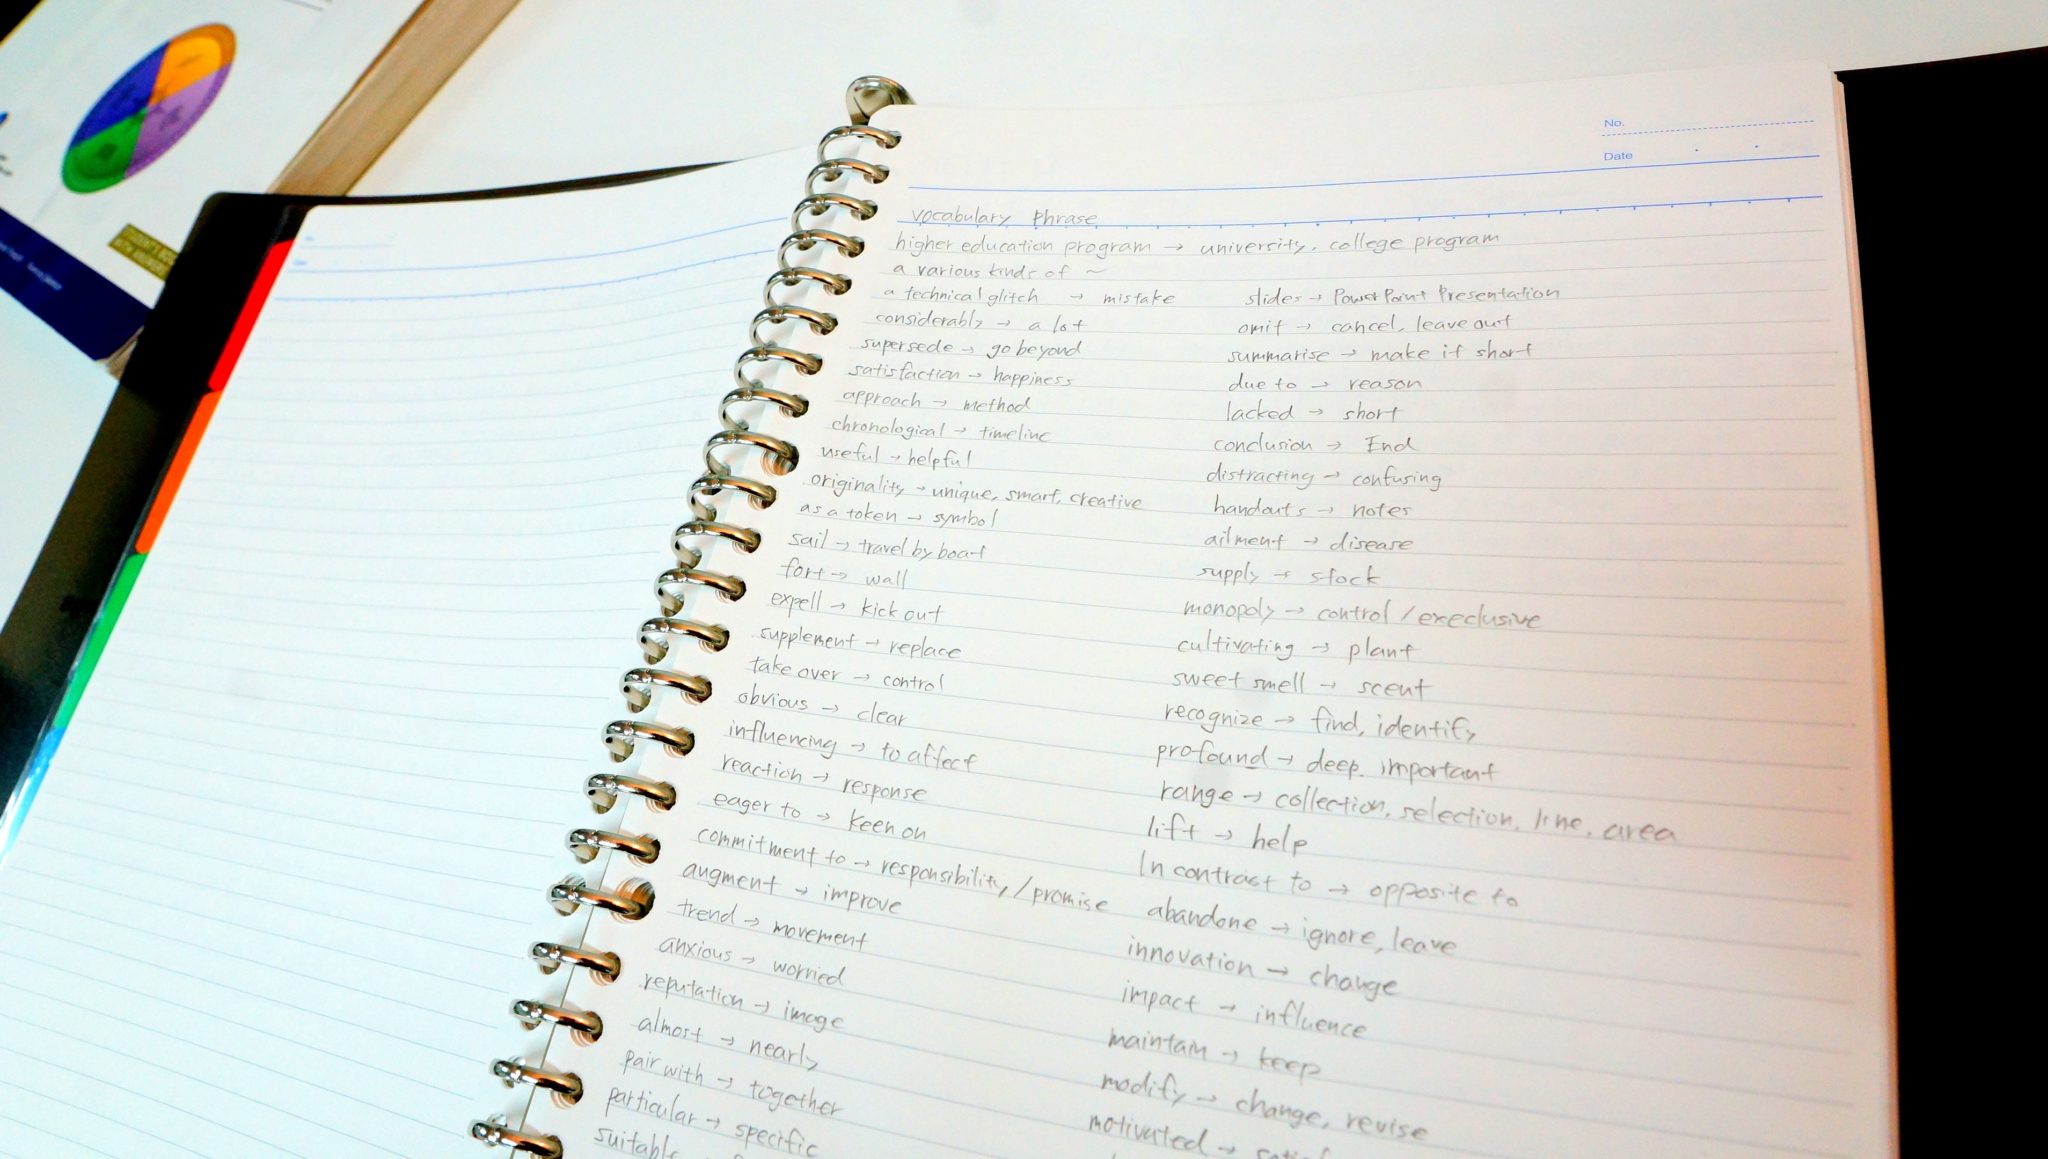 No.
Date
vocabulary phrase
higher education program → university, college program
a various kinds of ~
a technical glitch → mistake
considerably → a lot
supersede → go beyond
satisfaction → happiness
approach → method
chronological → timeline
useful → helpful
originality → unique, smart, creative
as a token → symbol
sail → travel by boat
fort → wall
expell → kick out
supplement → replace
take over → control
obvious → clear
influencing → to affect
reaction → response
eager to → keen on
commitment to → responsibility / promise
augment → improve
trend → movement
anxious → worried
reputation → image
almost → nearly
pair with → together
particular → specific
slides → PowerPoint Presentation
omit → cancel, leave out
summarise → make it short
due to → reason
lacked → short
conclusion → End
distracting → confusing
handouts → notes
ailment → disease
supply → stock
monopoly → control / execlusive
cultivating → plant
sweet smell → scent
recognize → find, identify
profound → deep. important
range → collection, selection, line, area
lift → help
In contrast to → opposite to
abandone → ignore, leave
innovation → change
impact → influence
maintain → keep
modify → change, revise
motivated →